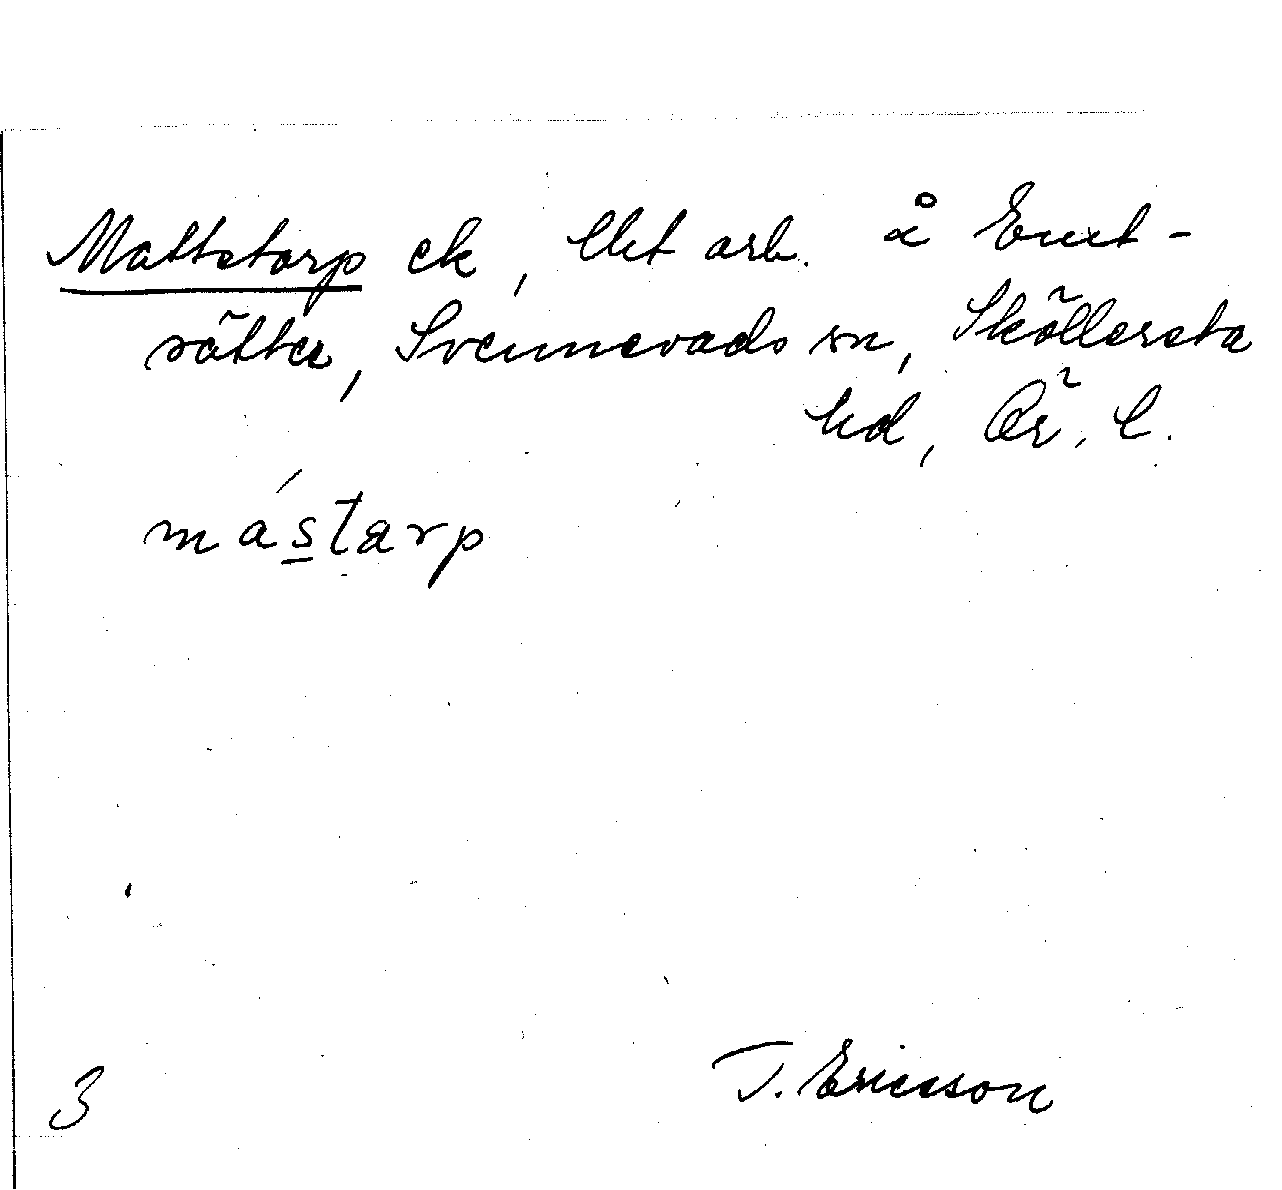 Mattstorp ek, Utl arb. å Enst-
rötter, Svennevads sn, Sköllersta
hd, Ör. l.
mástarp
T. Ericsson
3